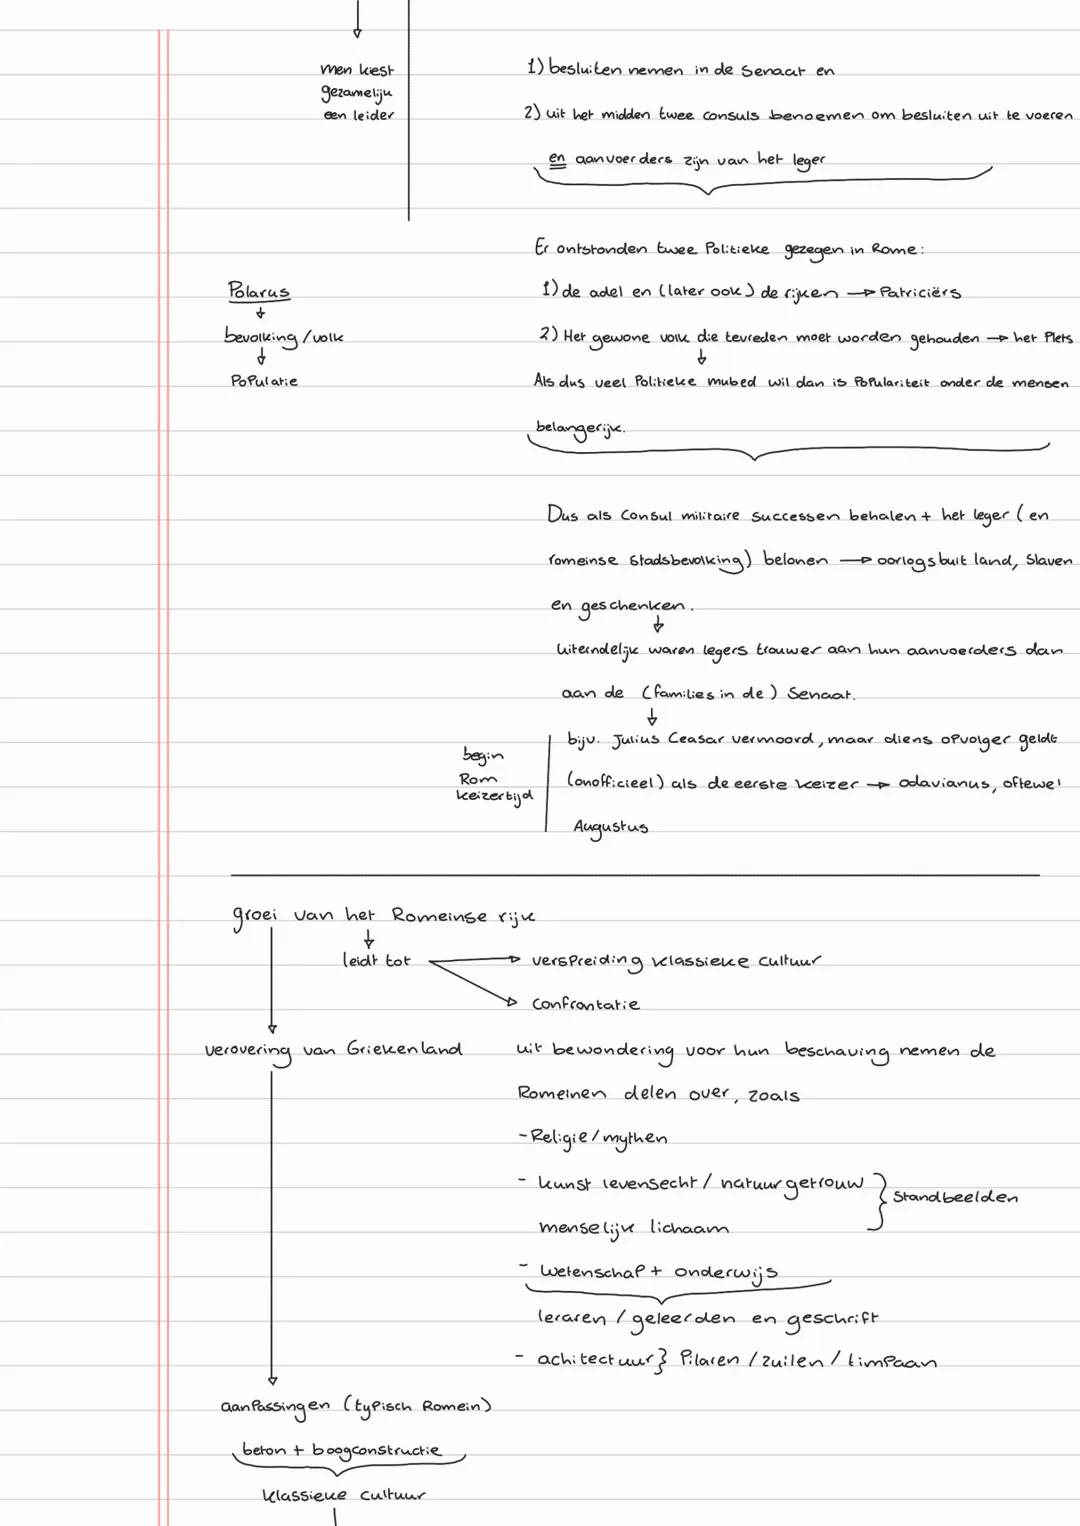 men kiest
gezamelijk
een leider
1) besluiten nemen in de Senaat en
2) uit het midden twee consuls benoemen om besluiten uit te voeren
en aanvoerders zijn van het leger
Er ontstonden twee Politieke gezegen in Rome:
1) de adel en (later ook) de rijken → Patriciërs
2) Het gewone volk die tevreden moet worden gehouden → het Plets
Als dus veel Politieke mubed wil dan is Populariteit onder de mensen
belangerijk.
Polarus
↓
bevolking/volk
↓
Populatie
Dus als Consul militaire successen behalen + het leger (en
romeinse stadsbevolking) belonen → oorlogsbuit land, Slaven
en geschenken.
↓
Uiterndelijk waren legers trouwer aan hun aanvoerders dan
aan de (families in de) Senaat.
↓
bijv. Julius Ceasar vermoord, maar diens opvolger geldt
(onofficieel) als de eerste keizer → odavianus, oftewel
Augustus
begin
Rom
keizertijd
groei van het Romeinse rijk
↓
leidt tot → verspreiding klassieke cultuur
→ Confrontatie
verovering van Griekenland
uit bewondering voor hun beschaving nemen de
Romeinen delen over, zoals
- Religie/mythen
- kunst levensecht/ natuurgetrouw } Standbeelden
menselijk lichaam
- wetenschap + onderwijs
leraren / geleerden en geschrift
- achitectuur } Pilaren / zuilen / timpaan
aanpassingen (typisch Romein)
beton + boogconstructie
klassieke cultuur